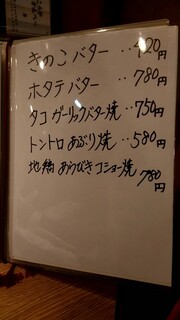 きのこバター‥420円
ホタテバター‥780円
タコガーリックバター焼‥750円
トントロあぶり焼‥580円
地鶏あらびきコショー焼
780円